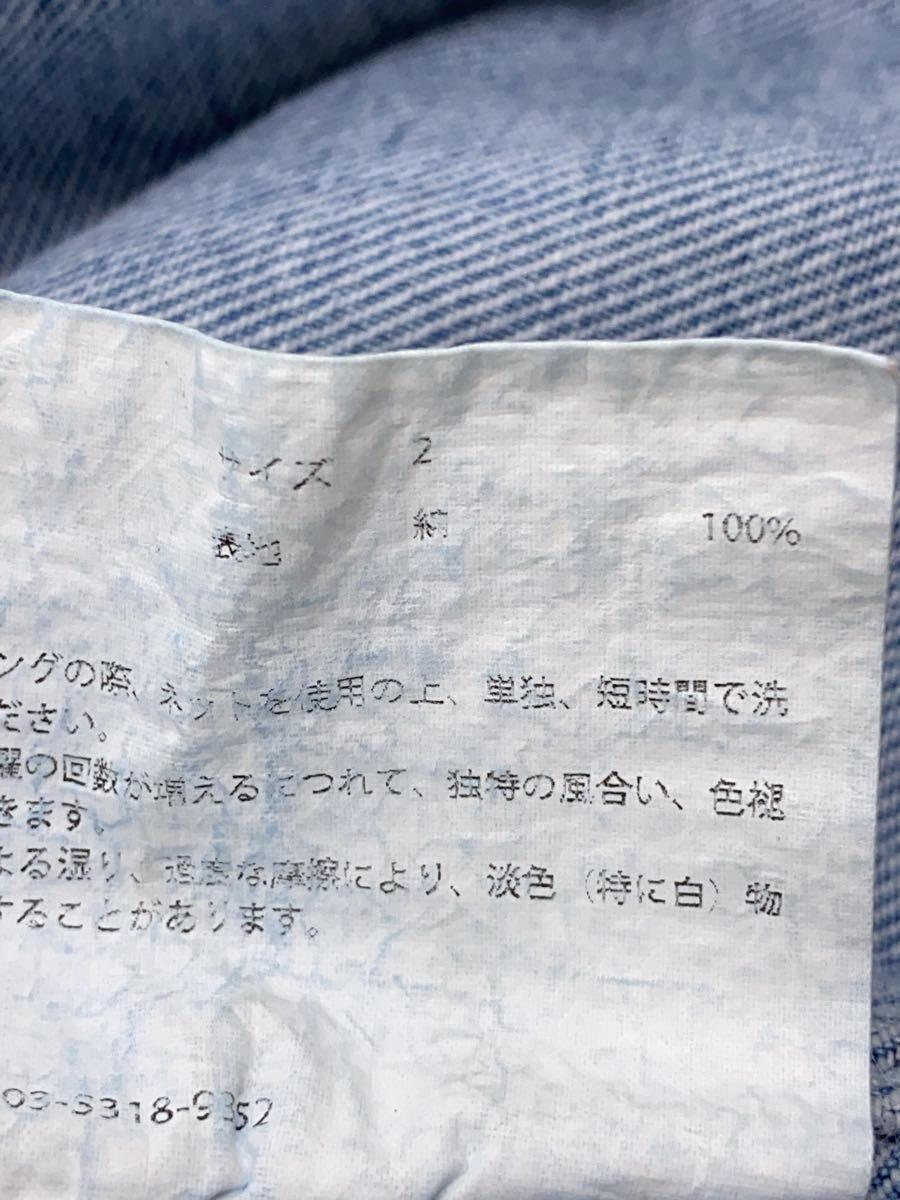 サイズ 2
表地 綿 100%
ングの際、ネットを使用の上、単独、短時間で洗
ださい。
濯の回数が増えるにつれて、独特の風合い、色褪
きます。
よる湿り、過度な摩擦により、淡色（特に白）物
することがあります。